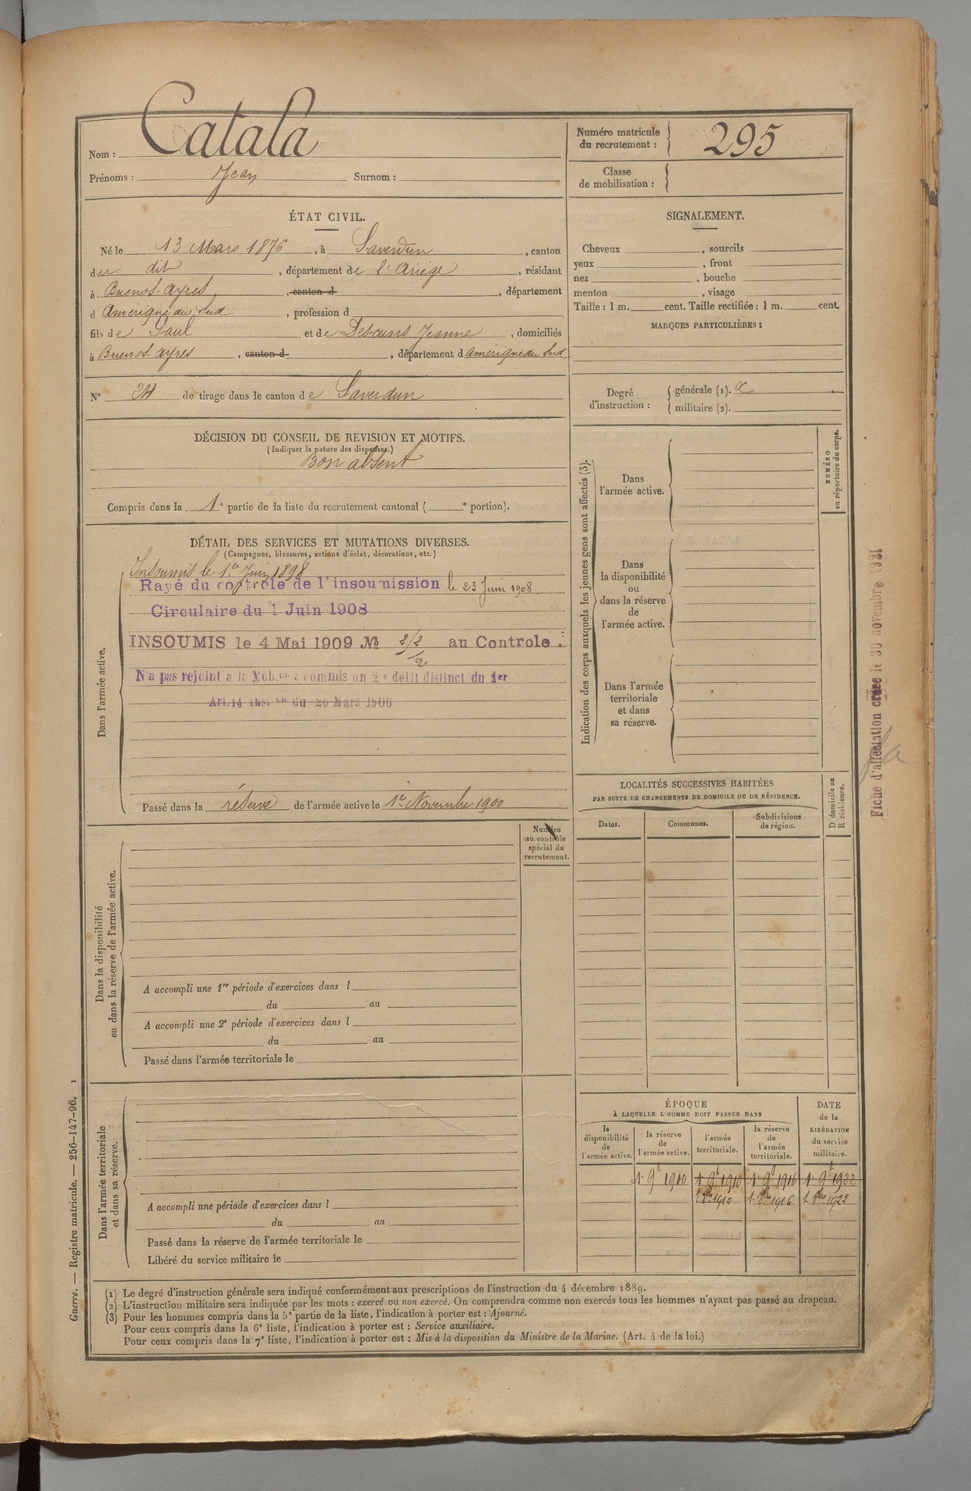 Nom : Catala
Prénoms : Jean Surnom :
Numéro matricule du recrutement : 295
Classe de mobilisation :
ÉTAT CIVIL.
Né le 13 Mars 1876, à Saverdun, canton
du dit, département de l'Ariège, résidant
à Buenos-ayres, canton d, département
d Amérique du Sud, profession d
fils de Paul et de Debouns Jeanne, domiciliés
à Buenos-ayres, canton d, département d Amérique du Sud
N° 34 de tirage dans le canton de Saverdun
SIGNALEMENT.
Cheveux , sourcils
yeux , front
nez , bouche
menton , visage
Taille : 1 m. cent. Taille rectifiée : 1 m. cent.
MARQUES PARTICULIÈRES :
Degré d'instruction : générale (1). x
militaire (2).
DÉCISION DU CONSEIL DE REVISION ET MOTIFS.
(Indiquer la nature des dispenses.)
Bon absent
Compris dans la 1e partie de la liste du recrutement cantonal ( e portion).
DÉTAIL DES SERVICES ET MUTATIONS DIVERSES.
(Campagnes, blessures, actions d'éclat, décorations, etc.)
Dans l'armée active.
Insoumis le 1er Juin 1898
Rayé du contrôle de l'insoumission le 23 Juin 1908
Circulaire du 1 Juin 1908
INSOUMIS le 4 Mai 1909 No 2/2/2 au Controle :
N'a pas rejoint à la Mob.on a commis un 2e délit distinct du 1er
Art. 14 Inst on du 20 Mars 1906
Passé dans la réserve de l'armée active le 1er Novembre 1900
Indication des corps auxquels les jeunes gens sont affectés (3).
NUMÉRO au répertoire du corps.
Dans l'armée active.
Dans la disponibilité ou dans la réserve de l'armée active.
Dans l'armée territoriale et dans sa réserve.
LOCALITÉS SUCCESSIVES HABITÉES
PAR SUITE DE CHANGEMENTS DE DOMICILE OU DE RÉSIDENCE.
Dates. Communes. Subdivisions de région. D domicile ou R résidence.
Numéro au contrôle spécial du recrutement.
Dans la disponibilité ou dans la réserve de l'armée active.
A accompli une 1re période d'exercices dans l
du au
A accompli une 2e période d'exercices dans l
du au
Passé dans l'armée territoriale le
Dans l'armée territoriale et dans sa réserve.
A accompli une période d'exercices dans l
du au
Passé dans la réserve de l'armée territoriale le
Libéré du service militaire le
ÉPOQUE
À LAQUELLE L'HOMME DOIT PASSER DANS
DATE de la LIBÉRATION du service militaire.
la disponibilité de l'armée active. la réserve de l'armée active. l'armée territoriale. la réserve de l'armée territoriale.
1er 9bre 1900 1er 9bre 1910 1er 9bre 1916 1er 9bre 1922
1 8bre 1910 1 8bre 1916 1 8bre 1922
(1) Le degré d'instruction générale sera indiqué conformément aux prescriptions de l'instruction du 4 décembre 1889.
(2) L'instruction militaire sera indiquée par les mots : exercé ou non exercé. On comprendra comme non exercés tous les hommes n'ayant pas passé au drapeau.
(3) Pour les hommes compris dans la 5e partie de la liste, l'indication à porter est : Ajourné.
Pour ceux compris dans la 6e liste, l'indication à porter est : Service auxiliaire.
Pour ceux compris dans la 7e liste, l'indication à porter est : Mis à la disposition du Ministre de la Marine. (Art. 4 de la loi.)
Guerre. — Registre matricule. — 256-147-96. 1
Fiche d'affectation créée le 30 novembre 1921